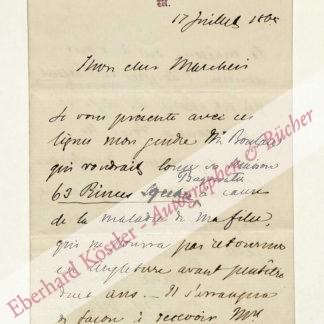 17 Juillet 18
Mon cher
Je vous présente avec ces
lignes mon gendre Mr
qui voudrait louer sa maison
Bayswater
63 Princes Square à cause
de la maladie de ma fille,
qui ne pourra pas retourner
en Angleterre avant peutêtre
deux ans. — Il s'arrangera
de façon à recevoir Mrs
Eberhard Köstler - Autographen & Bücher